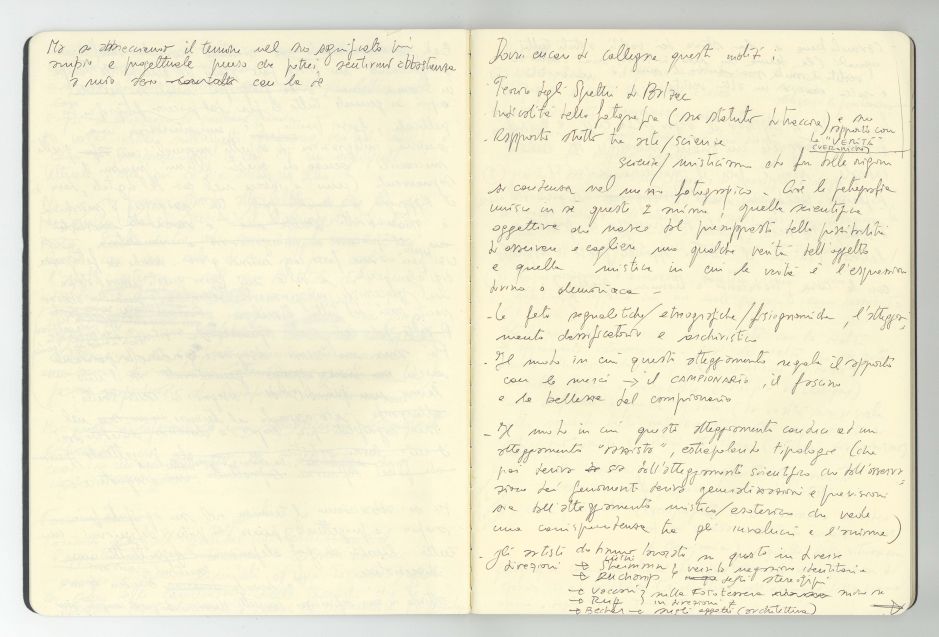 Ma se attraversiamo il termine nel suo significato più
ampio e progettuale penso che potrei sentirmi abbastanza
a mio
con la
Dovrei cercare di collegare questi motivi
- Teoria degli Spettri di Balzac
- Indicalità della fotografia (suo statuto di traccia) e suo
rapporto con
la "VERITÀ"
- Rapporto stretto tra arte/scienza
scienza/misticismo che fin dalle origini
si condensa nel mezzo fotografico. Cioè la fotografia
unisce in sé queste 2 anime, quella scientifica
oggettiva che nasce dal presupposto della possibilità
di osservare e cogliere una qualche verità dell'oggetto
e quella mistica in cui la verità è l'espressione
divina o demoniaca -
- le foto segnaletiche/etnografiche/fisiognomiche, l'atteggia-
mento classificatorio e archivistico
- Il modo in cui questo atteggiamento regola il rapporto
con le merci → il CAMPIONARIO, il fascino
e la bellezza del campionario
- Il modo in cui questo atteggiamento conduce ad un
atteggiamento "razzista", estrapolando tipologie (che
poi deriva sia dall'atteggiamento scientifico che dall'osserva-
zione dei fenomeni deriva generalizzazioni e previsioni
sia dall'atteggiamento mistico/esoterico che vede
una corrispondenza tra gli involucri e l'anima)
- gli artisti hanno lavorato su questo in diverse
direzioni → Sherman verso la negazione identitaria
→ Duchamp e degli stereotipi
→ Vaccari sulla Fototessera
→ Ruff in direzioni
→ Becher - sugli oggetti (architettura)